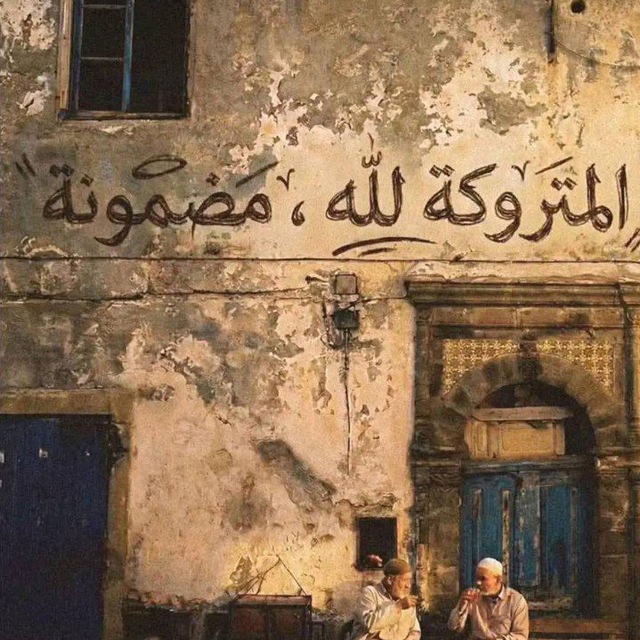 "المتروكة لله ، مضمونة"